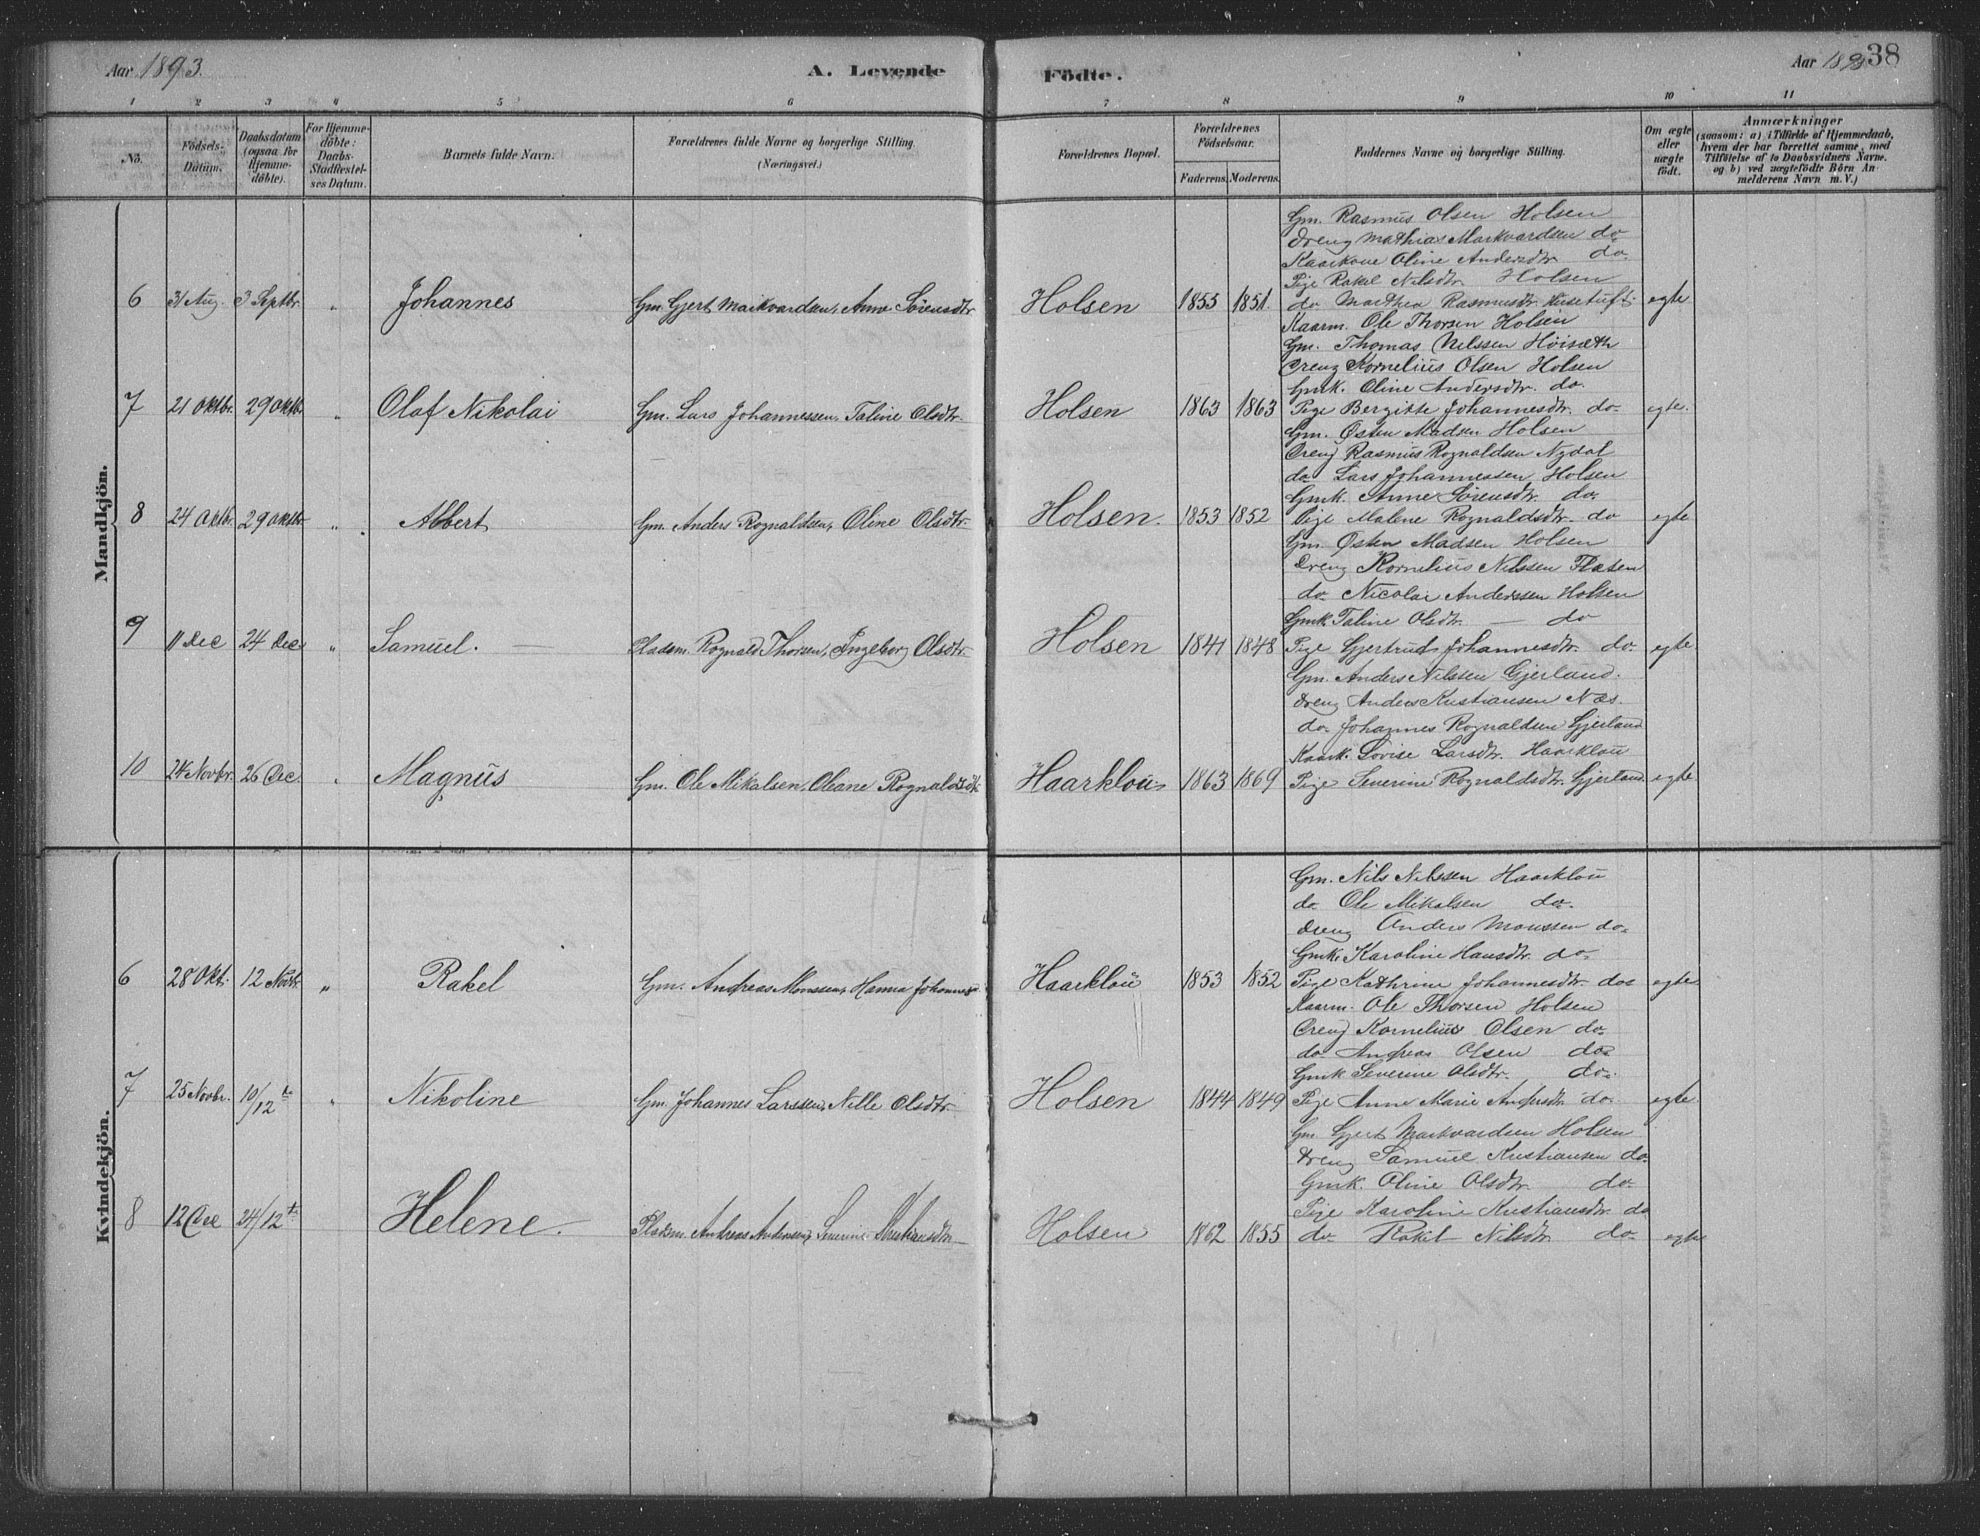 Aar 1893. A. Levende Födte. Aar 1893 38
1 2 3 4 5 6 7 8 9 10 11
No. Födsels-Datum. Daabsdatum (ogsaa for Hjemme-döbte). For Hjemme-döbte: Daabs-Stadfæstel-ses Datum. Barnets fulde Navn. Forældrenes fulde Navne og borgerlige Stilling. (Næringsvei.) Forældrenes Bopæl. Forældrenes Födselsaar. Faderens. Moderens. Faddernes Navne og borgerlige Stilling. Om ægte eller uægte födt. Anmærkninger (saasom: a) i Tilfælde af Hjemmedaab, hvem der har forrettet samme, med Tilföielse af to Daabsvidners Navne. og b) ved uægtefödte Börn An-melderens Navn m. V.)
Mandkjön.
Gm. Rasmus Olsen Holsen
Dreng Mathias Markvardsen do
Kaarkone Oline Andersdtr. do.
Pige Rakel Nilsdtr. Holsen
6 31 Aug. 3 Septbr. " Johannes Gm. Gjert Markvardsen, Anne Sörensdtr Holsen 1855 1851. do Marthea Rasmusdtr. Husetuft. egte
Kaarm. Ole Thorsen Holsen
Gm. Thomas Nilssen Höisæth
Dreng Kornelius Olsen Holsen
Gmk. Oline Andersdtr. do.
7 21 Oktbr. 29 Oktb. " Olaf Nikolai Gm. Lars Johannessen, Taline Olsdtr. Holsen 1863 1863 Pige Bergitte Johannesdtr. do. egte.
Gm. Østen Madsen Holsen
Dreng Rasmus Rognaldsen Nydal
do Lars Johannessen Holsen
Gmk. Anne Sörensdtr. do.
8 24 Oktbr. 29 Oktbr. " Albert Gm. Anders Rognaldsen, Oline Olsdtr. Holsen. 1853 1852 Pige Malene Rognaldsdtr. do egte
Gm. Østen Madsen Holsen
Dreng Kornelius Nilssen Flaten
do. Nicolai Anderssen Holsen
Gmk Taline Olsdtr. — do
9 11 Dec 24 Dec " Samuel. Pladsm. Rognald Thorsen, Ingeborg Olsdtr. Holsen 1841 1848 Pige Gjertrud Johannesdtr. do. egte
Gm. Anders Nilssen Gjerland.
Dreng Anders Kristiansen Næs.
do. Johannes Rognaldsen Gjerland
Kaark. Lovise Larsdtr. Haarklou
10 24 Novbr. 26 Dec. " Magnus Gm. Ole Mikalsen, Oleane Rognaldsdtr Haarklou 1863 1869 Pige Severine Rognaldsdtr. Gjerland egte
Kvindekjön.
Gm. Nils Nilssen Haarklou
do. Ole Mikalsen do.
Dreng Anders Monssen do.
Gmk. Karoline Hansdtr. do.
6 28 Okt. 12 Novbr. " Rakel Gm. Andreas Monssen, Hanna Johannes Haarklou 1853 1852 Pige Kathrine Johannesdtr. do. egte
Kaarm. Ole Thorsen Holsen
Dreng Kornelius Olsen do.
do. Andreas Olsen do.
Gmk Severine Olsdtr. do.
7 25 Novbr. 10/12 " Nikoline Gm. Johannes Larssen, Nille Olsdtr. Holsen 1844 1849 Pige Anne Marie Andersdtr. do. egte
Gm. Gjert Markvardsen Holsen
Dreng Samuel Kristiansen do.
Gmk. Oline Olsdtr. do.
Pige Karoline Kristiansdtr. do
8 12 Dec 24/12 Helene. Pladsm. Andreas Andersen, Severine Kristiansdtr. Holsen 1862 1855 do. Rakel Nilsdtr. do. egte